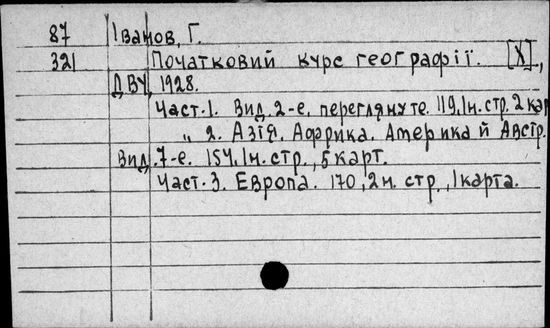 87 Іванов, Г.
321 Початковий курс географії. [X].,
ДВУ, 1928.
Част. 1. Вид. 2-е, переглянуте. 119,1н.стр. 2 кар
„ 2. Азія. Африка. Америка й Австр.
Вид. 7-е. 154,1н.стр., 5 карт.
Част. 3. Европа. 170, 2н. стр., 1 карта.